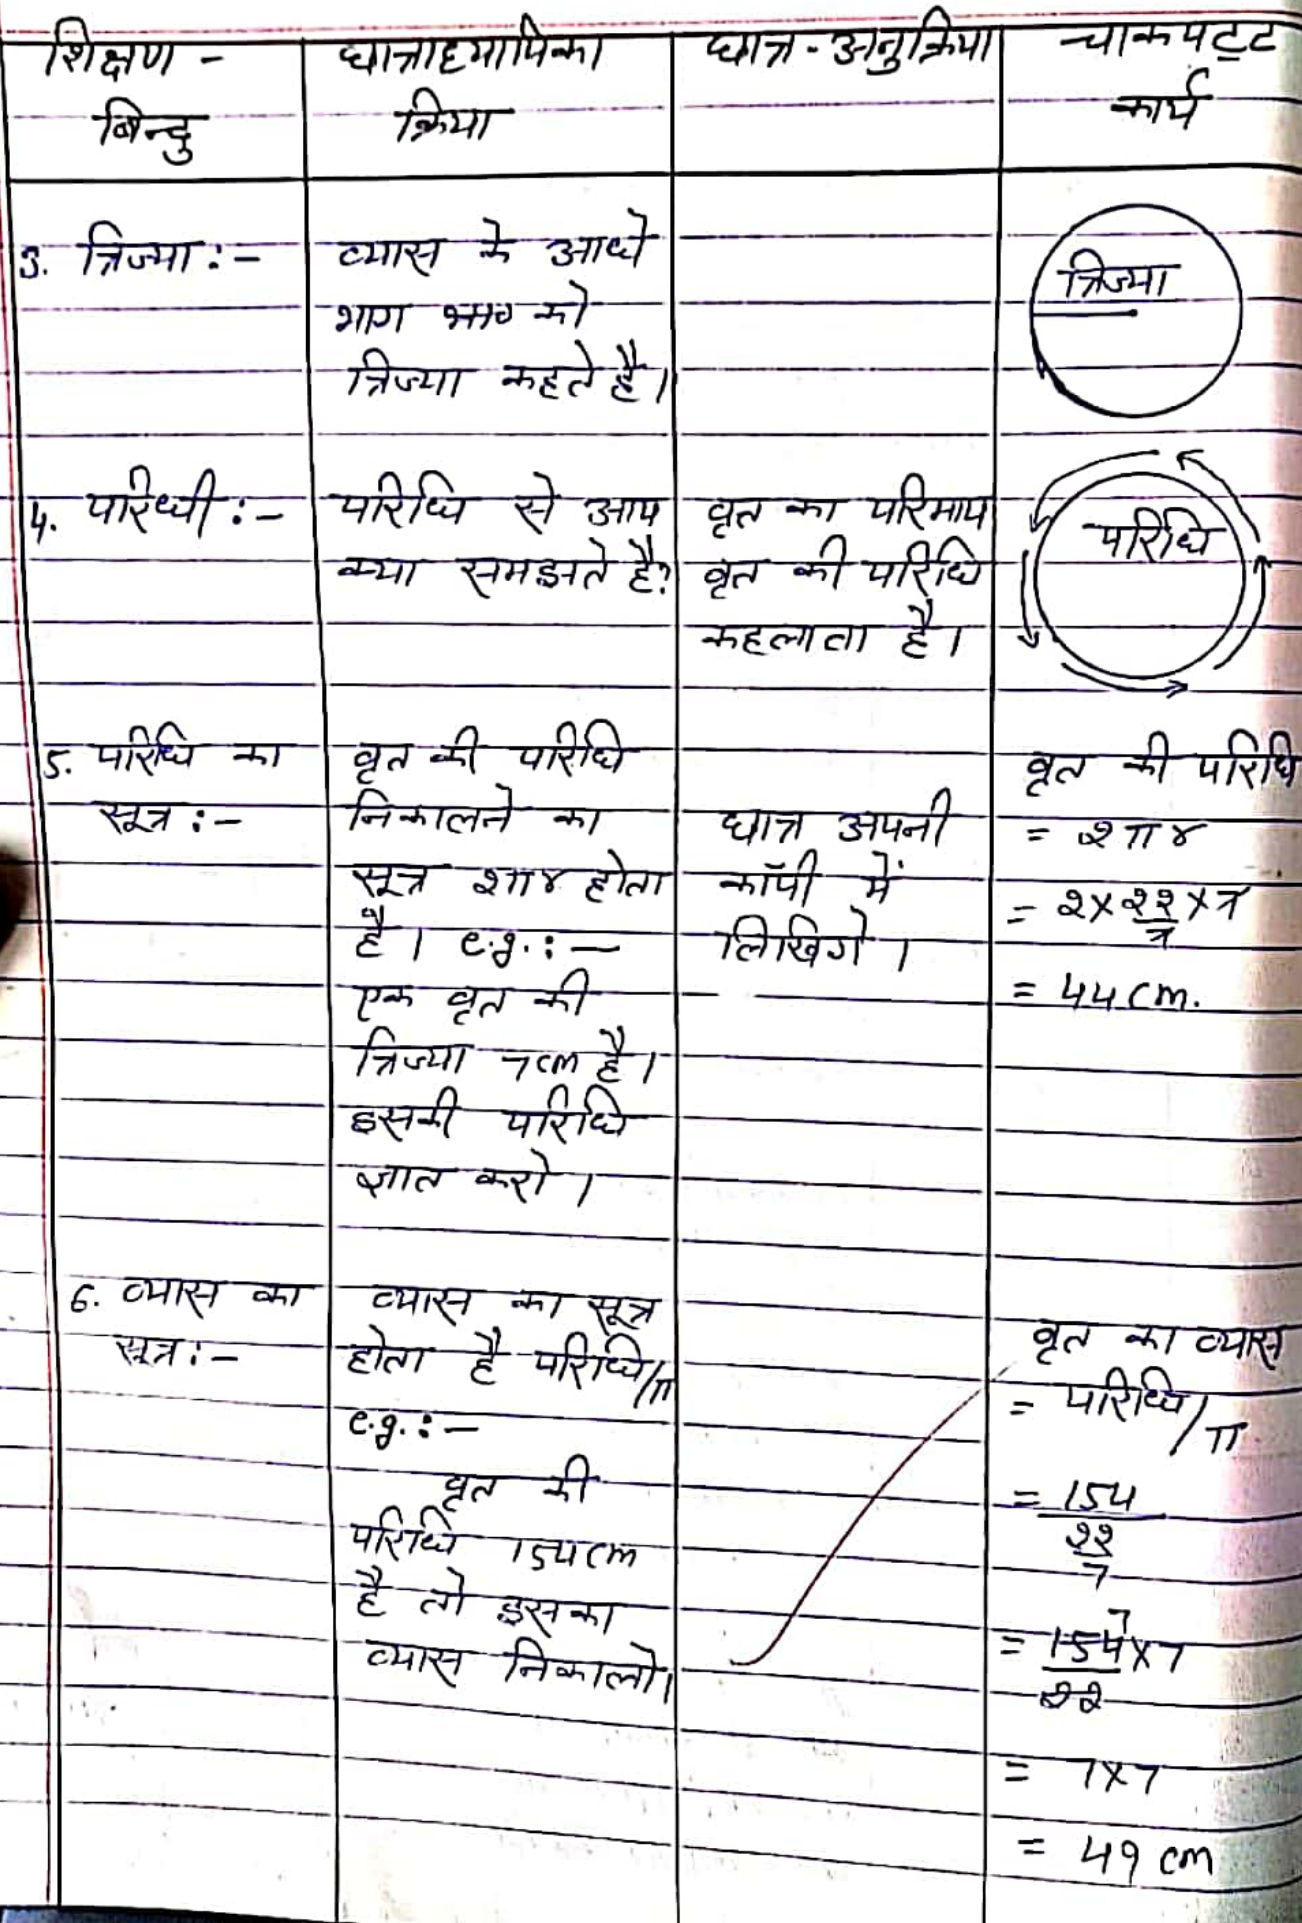 शिक्षण -
बिन्दु
छात्राध्यापिका
क्रिया
छात्र - अनुक्रिया
चाकपट्ट
कार्य
3. त्रिज्या :-
व्यास के आधे
भाग को
त्रिज्या कहते है।
त्रिज्या
4. परिध्धी :-
परिधि से आप
क्या समझते है?
वृत का परिमाप
वृत की परिधि
कहलाता है।
परिधि
5. परिधि का
सूत्र :-
वृत की परिधि
निकालने का
सूत्र 2πr होता
है। e.g. :-
एक वृत की
त्रिज्या 7cm है।
इसकी परिधि
ज्ञात करो।
छात्र अपनी
कॉपी में
लिखेगे।
वृत की परिधि
= 2πr
= 2 × 22/7 × 7
= 44 cm.
6. व्यास का
सूत्र :-
व्यास का सूत्र
होता है परिधि/π
e.g. :-
वृत की
परिधि 154cm
है तो इसका
व्यास निकालो।
वृत का व्यास
= परिधि/π
= 154
22
7
= 154 7 × 7
22
= 7×7
= 49 cm